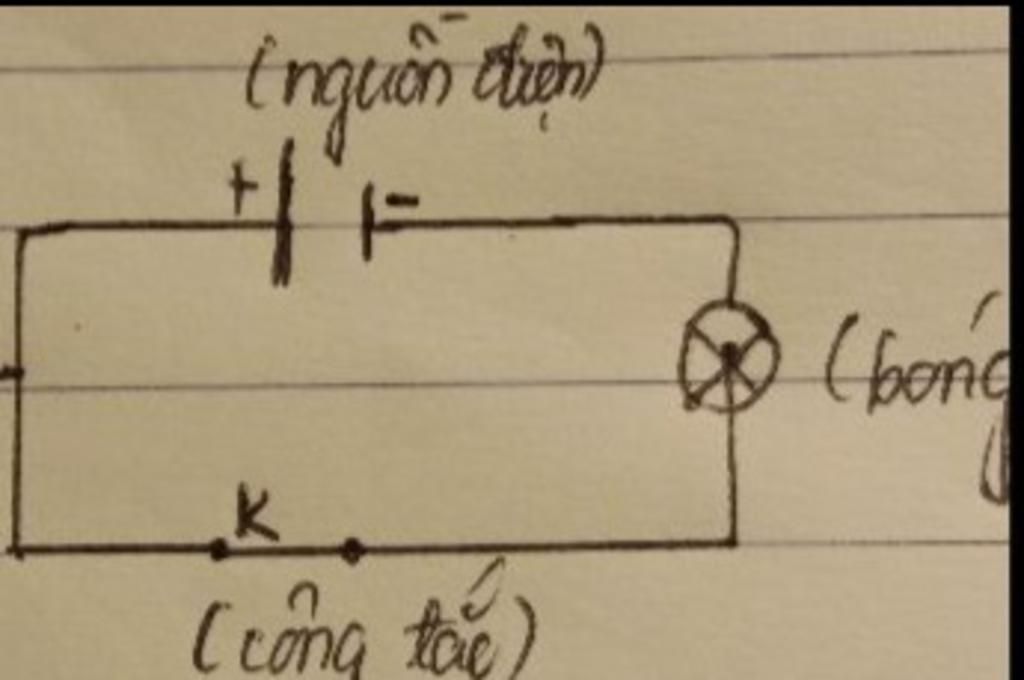 (nguồn điện)
+ -
(bóng
K
(công tắc)